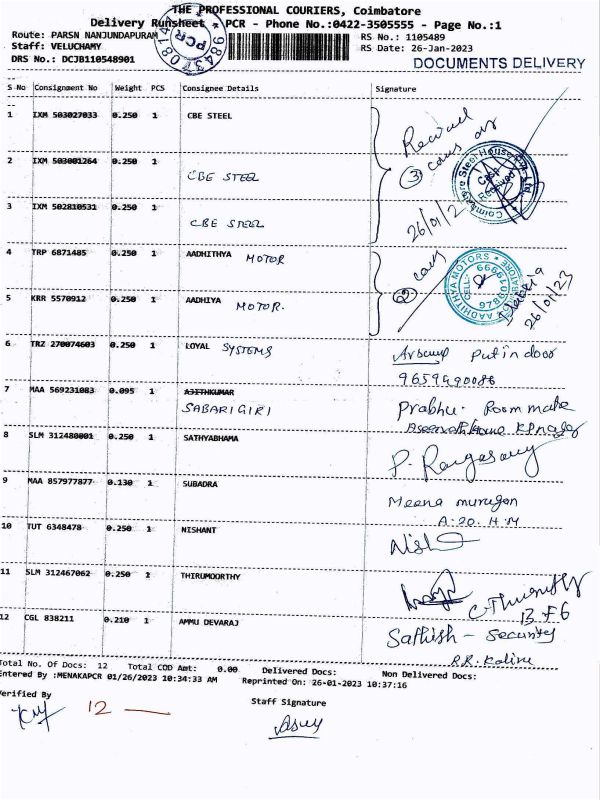 THE PROFESSIONAL COURIERS, Coimbatore
Delivery Runsheet PCR - Phone No.:0422-3505555 - Page No.:1
Route: PARSN NANJUNDAPURAM
RS No.: 1105489
Staff: VELUCHAMY
RS Date: 26-Jan-2023
DRS No.: DCJB110548901
DOCUMENTS DELIVERY
PCR
S No Consignment No Weight PCS Consignee Details Signature
1 IXM 503027033 0.250 1 CBE STEEL
2 IXM 503001264 0.250 1 CBE STEEL
3 IXM 502810531 0.250 1 CBE STEEL
Coimbatore Steel House Pvt. Ltd
4 TRP 6871485 0.250 1 AADHITHYA MOTOR
5 KRR 5570912 0.250 1 AADHIYA MOTOR.
AADHITHYA MOTORS
CELL:
26/01/23
6 TRZ 270074603 0.250 1 LOYAL SYSTEMS
put in door
9659990086
7 MAA 569231083 0.095 1 AJITHKUMAR
SABARIGIRI
Prabhu. Room mate
8 SLM 312480001 0.250 1 SATHYABHAMA
9 MAA 857977877 0.130 1 SUBADRA
Meena murugan
A.20. H.M
10 TUT 6348478 0.250 1 NISHANT
11 SLM 312467062 0.250 1 THIRUMOORTHY
B F6
12 CGL 838211 0.210 1 AMMU DEVARAJ
Sathish - Security
Total No. Of Docs: 12 Total COD Amt: 0.00 Delivered Docs: Non Delivered Docs:
Entered By :MENAKAPCR 01/26/2023 10:34:33 AM Reprinted On: 26-01-2023 10:37:16
Verified By
Staff Signature
12